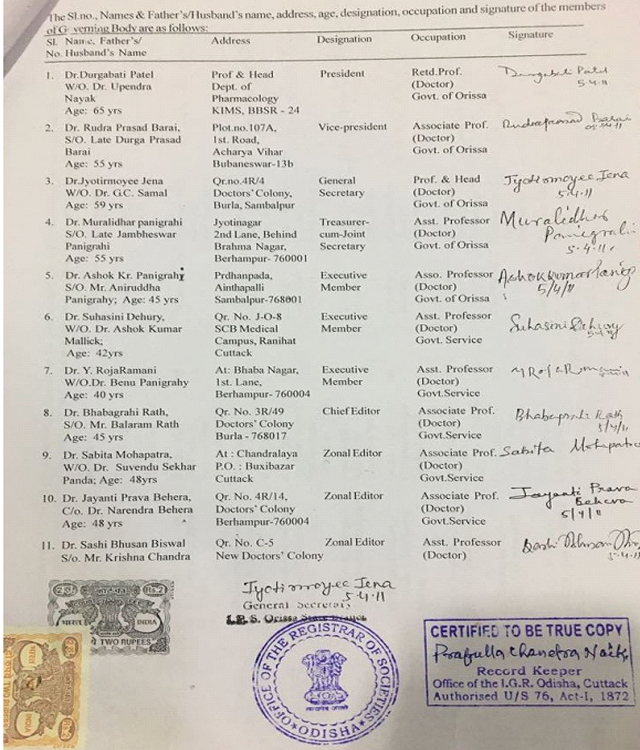 The Sl.no., Names & Father's/Husband's name, address, age, designation, occupation and signature of the members
of Governing Body are as follows:
Sl. Name, Father's/ Address Designation Occupation Signature
No. Husband's Name
1. Dr.Durgabati Patel Prof & Head President Retd.Prof. Durgabati Patel
W/O. Dr. Upendra Dept. of (Doctor) 5-4-11
Nayak Pharmacology Govt. of Orissa
Age: 65 yrs KIMS, BBSR - 24
2. Dr. Rudra Prasad Barai, Plot.no.107A, Vice-president Associate Prof. Rudraprasad Barai
S/O. Late Durga Prasad 1st. Road, (Doctor) 05-4-11
Barai Acharya Vihar Govt. of Orissa
Age: 55 yrs Bubaneswar-13b
3. Dr.Jyotirmoyee Jena Qr.no.4R/4 General Prof. & Head Jyotirmoyee Jena
W/O. Dr. G.C. Samal Doctors' Colony, Secretary (Doctor) 5.4.11
Age: 59 yrs Burla, Sambalpur Govt. of Orissa
4. Dr. Muralidhar panigrahi Jyotinagar Treasurer- Asst. Professor Muralidhar
S/O. Late Jambheswar 2nd Lane, Behind cum-Joint (Doctor) Panigrahi
Panigrahi Brahma Nagar, Secretary Govt. of Orissa 5-4-11
Age: 55 yrs Berhampur- 760001
5. Dr. Ashok Kr. Panigrahy Prdhanpada, Executive Asso. Professor Ashok kumar Panigrahy
S/O. Mr. Aniruddha Ainthapalli Member (Doctor) 5/4/11
Panigrahy; Age: 45 yrs Sambalpur-768001 Govt. of Orissa
6. Dr. Suhasini Dehury, Qr. No. J-O-8 Executive Asst. Professor Suhasini Dehury
W/O. Dr. Ashok Kumar SCB Medical Member (Doctor)
Mallick; Campus, Ranihat Govt. Service
Age: 42yrs Cuttack
7. Dr. Y. RojaRamani At: Bhaba Nagar, Executive Asst. Professor Y Roja Ramani
W/O.Dr. Benu Panigrahy 1st. Lane, Member (Doctor)
Age: 40 yrs Berhampur- 760004 Govt.Service
8. Dr. Bhabagrahi Rath, Qr. No. 3R/49 Chief Editor Associate Prof. Bhabagrahi Rath
S/O. Mr. Balaram Rath Doctors' Colony (Doctor) 5/4/11
Age: 45 yrs Burla - 768017 Govt.Service
9. Dr. Sabita Mohapatra, At : Chandralaya Zonal Editor Associate Prof. Sabita Mohapatra
W/O. Dr. Suvendu Sekhar P.O. : Buxibazar (Doctor)
Panda; Age: 48yrs Cuttack Govt.Service
10. Dr. Jayanti Prava Behera, Qr. No. 4R/14, Zonal Editor Associate Prof. Jayanti Prava
C/o. Dr. Narendra Behera Doctors' Colony (Doctor) Behera
Age: 48 yrs Berhampur-760004 Govt.Service 5/4/11
11. Dr. Sashi Bhusan Biswal Qr. No. C-5 Zonal Editor Asst. Professor
S/o. Mr. Krishna Chandra New Doctors' Colony (Doctor) 5-4-11
Jyotirmoyee Jena
5.4.11
General Secretary
I.P.S. Orissa State Branch
भारत INDIA
TWO RUPEES
OFFICE OF THE REGISTRAR OF SOCIETIES
ODISHA
CERTIFIED TO BE TRUE COPY
Prafulla Chandra Naik
Record Keeper
Office of the I.G.R. Odisha, Cuttack
Authorised U/S 76, Act-I, 1872